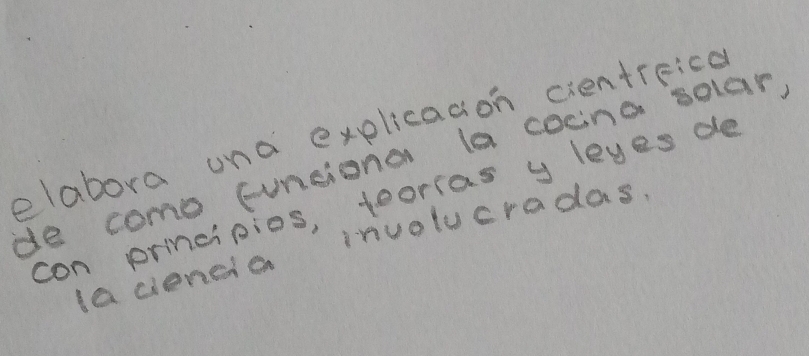 elabora una explicación cientifica
de como funciona la cocina solar,
con principios, teorias y leyes de
la ciencia involucradas.